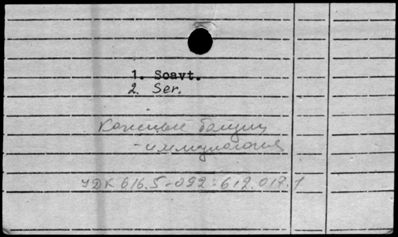 1. Soavt.
2. Ser.
Кожные болезни
- иммунология
УДК 616.5-092:612.017.1